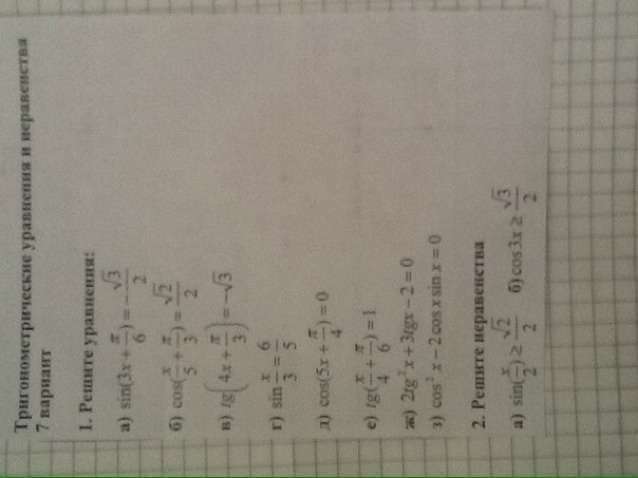 Тригонометрические уравнения и неравенства
7 вариант
1. Решите уравнения:
а) sin(3x + π/6) = -√3/2
б) cos(x/5 + π/3) = √2/2
в) tg(4x + π/3) = -√3
г) sin x/3 = 6/5
д) cos(5x + π/4) = 0
е) tg(x/4 + π/6) = 1
ж) 2tg²x + 3tgx - 2 = 0
з) cos² x - 2 cos x sin x = 0
2. Решите неравенства
а) sin(x/2) ≥ √2/2 б) cos 3x ≥ √3/2